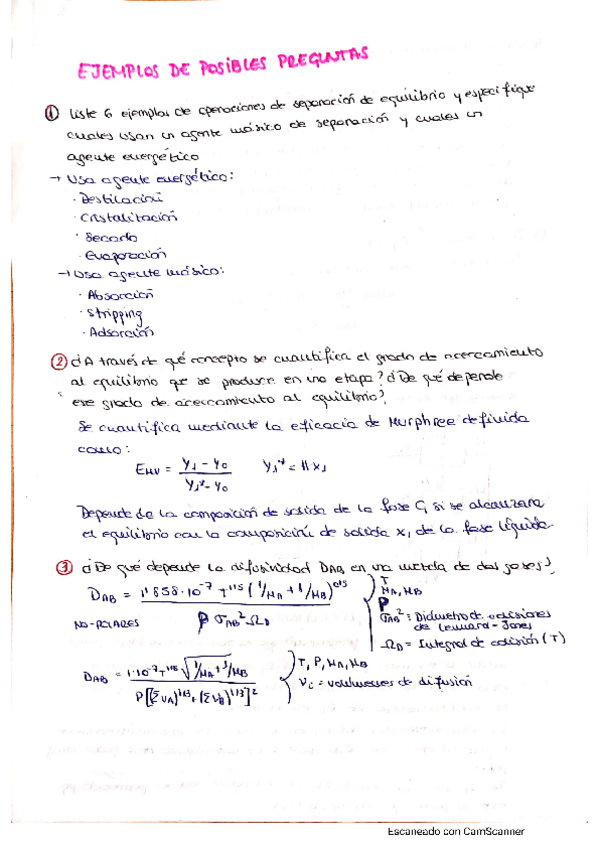 EJEMPLOS DE POSIBLES PREGUNTAS
① Liste 6 ejemplos de operaciones de separación de equilibrio y especifique
cuales usan un agente másico de separación y cuales un
agente energético
→ Usa agente energético:
· Destilación
· Cristalización
· Secado
· Evaporación
→ Usa agente másico:
· Absorción
· Stripping
· Adsorción
② ¿A través de qué concepto se cuantifica el grado de acercamiento
al equilibrio que se produce en una etapa? ¿De qué depende
ese grado de acercamiento al equilibrio?
Se cuantifica mediante la eficacia de Murphree definida
como:
E_MV = (y₁ - y₀) / (y₁* - y₀)   y₁* = H x₁
Depende de la composición de salida de la fase G, si se alcanzara
el equilibrio con la composición de salida x₁ de la fase líquida.
③ ¿De qué depende la difusividad D_AB en una mezcla de dos gases?
D_AB = 1'858·10⁻⁷ T^1'5 (1/M_A + 1/M_B)^0'5 / (P σ_AB² · Ω_D)
NO-POLARES
T
M_A, M_B
P
σ_AB² = Diámetro de colisiones
de Lennard-Jones
Ω_D = Integral de colisión (T)
D_AB = 1·10⁻⁷ T^1'75 √(1/M_A + 1/M_B) / P[(Σ v_A)^1/3 + (Σ v_B)^1/3]²
T, P, M_A, M_B
V_i = volúmenes de difusión
Escaneado con CamScanner